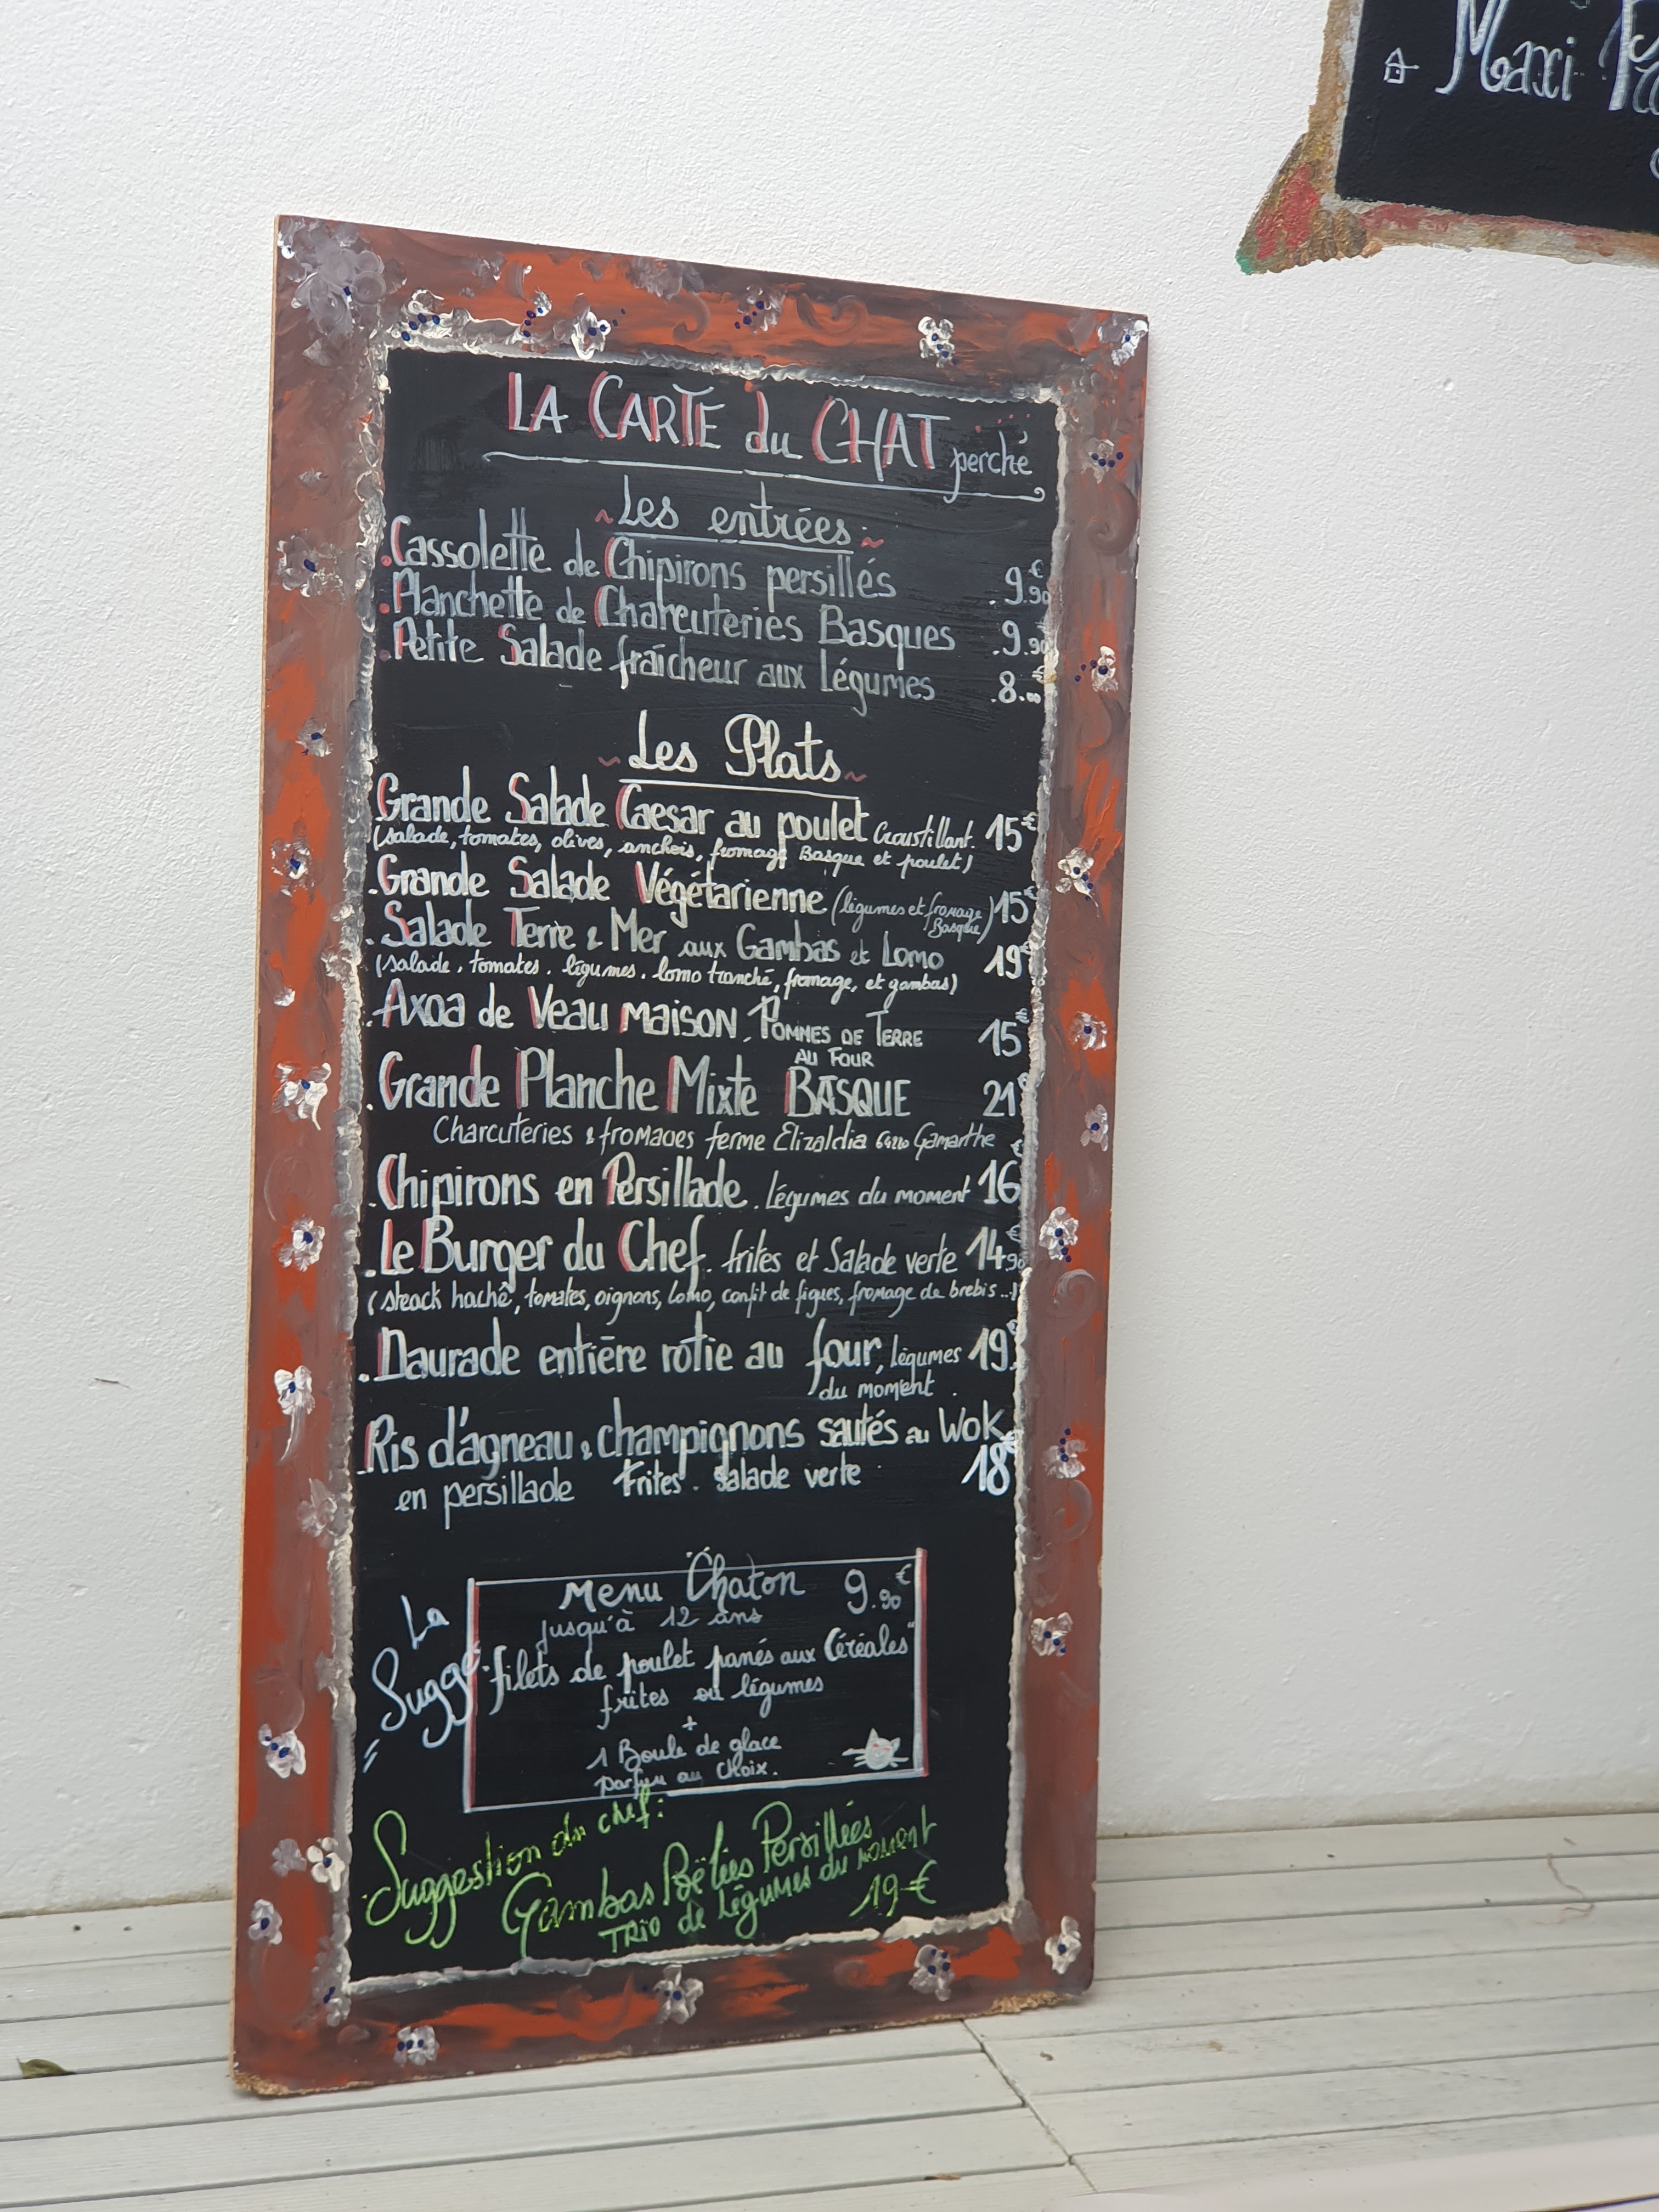 Maxi
LA CARTE du CHAT perché
~ Les entrées ~
.Cassolette de Chipirons persillés .9.€90
.Planchette de Charcuteries Basques .9.90
.Petite Salade fraîcheur aux Légumes .8.€00
~ Les Plats ~
Grande Salade Caesar au poulet Croustillant. 15€
(salade, tomates, olives, anchois, fromage Basque et poulet)
.Grande Salade Végétarienne (légumes et fromage Basque) 15€
.Salade Terre & Mer aux Gambas et Lomo 19€
(salade, tomates, légumes, lomo tranché, fromage, et gambas)
.Axoa de Veau MAISON. POMMES DE TERRE 15€
AU FOUR
.Grande Planche Mixte BASQUE 21€
Charcuteries & fromages ferme Elizaldia 64220 Gamarthe
.Chipirons en Persillade. Légumes du moment 16€
.Le Burger du Chef. frites et Salade verte 14.€90
(steack haché, tomates, oignons, Lomo, confit de figues, fromage de brebis...)
.Daurade entière rôtie au four, légumes 19.€
du moment.
.Ris d'agneau & champignons sautés au Wok
en persillade Frites. Salade verte 18€
La
Sugg
Menu Chaton 9.€90
jusqu'à 12 ans
"filets de poulet panés aux Céréales"
frites ou légumes
+
1 Boule de glace
parfum au choix.
Suggestion du chef:
Gambas Poêlées Persillées
TRIO de Légumes du MOMENT
19€